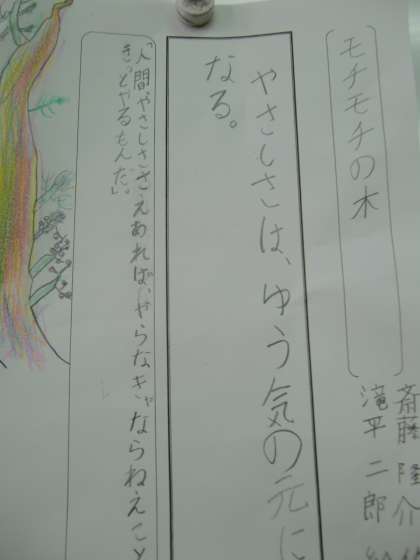 モチモチの木
斎藤隆介
滝平二郎
やさしさは、ゆう気の元に
なる。
「人間、やさしささえあれば、やらなきゃならねえこと
きっとやるもんだ。」